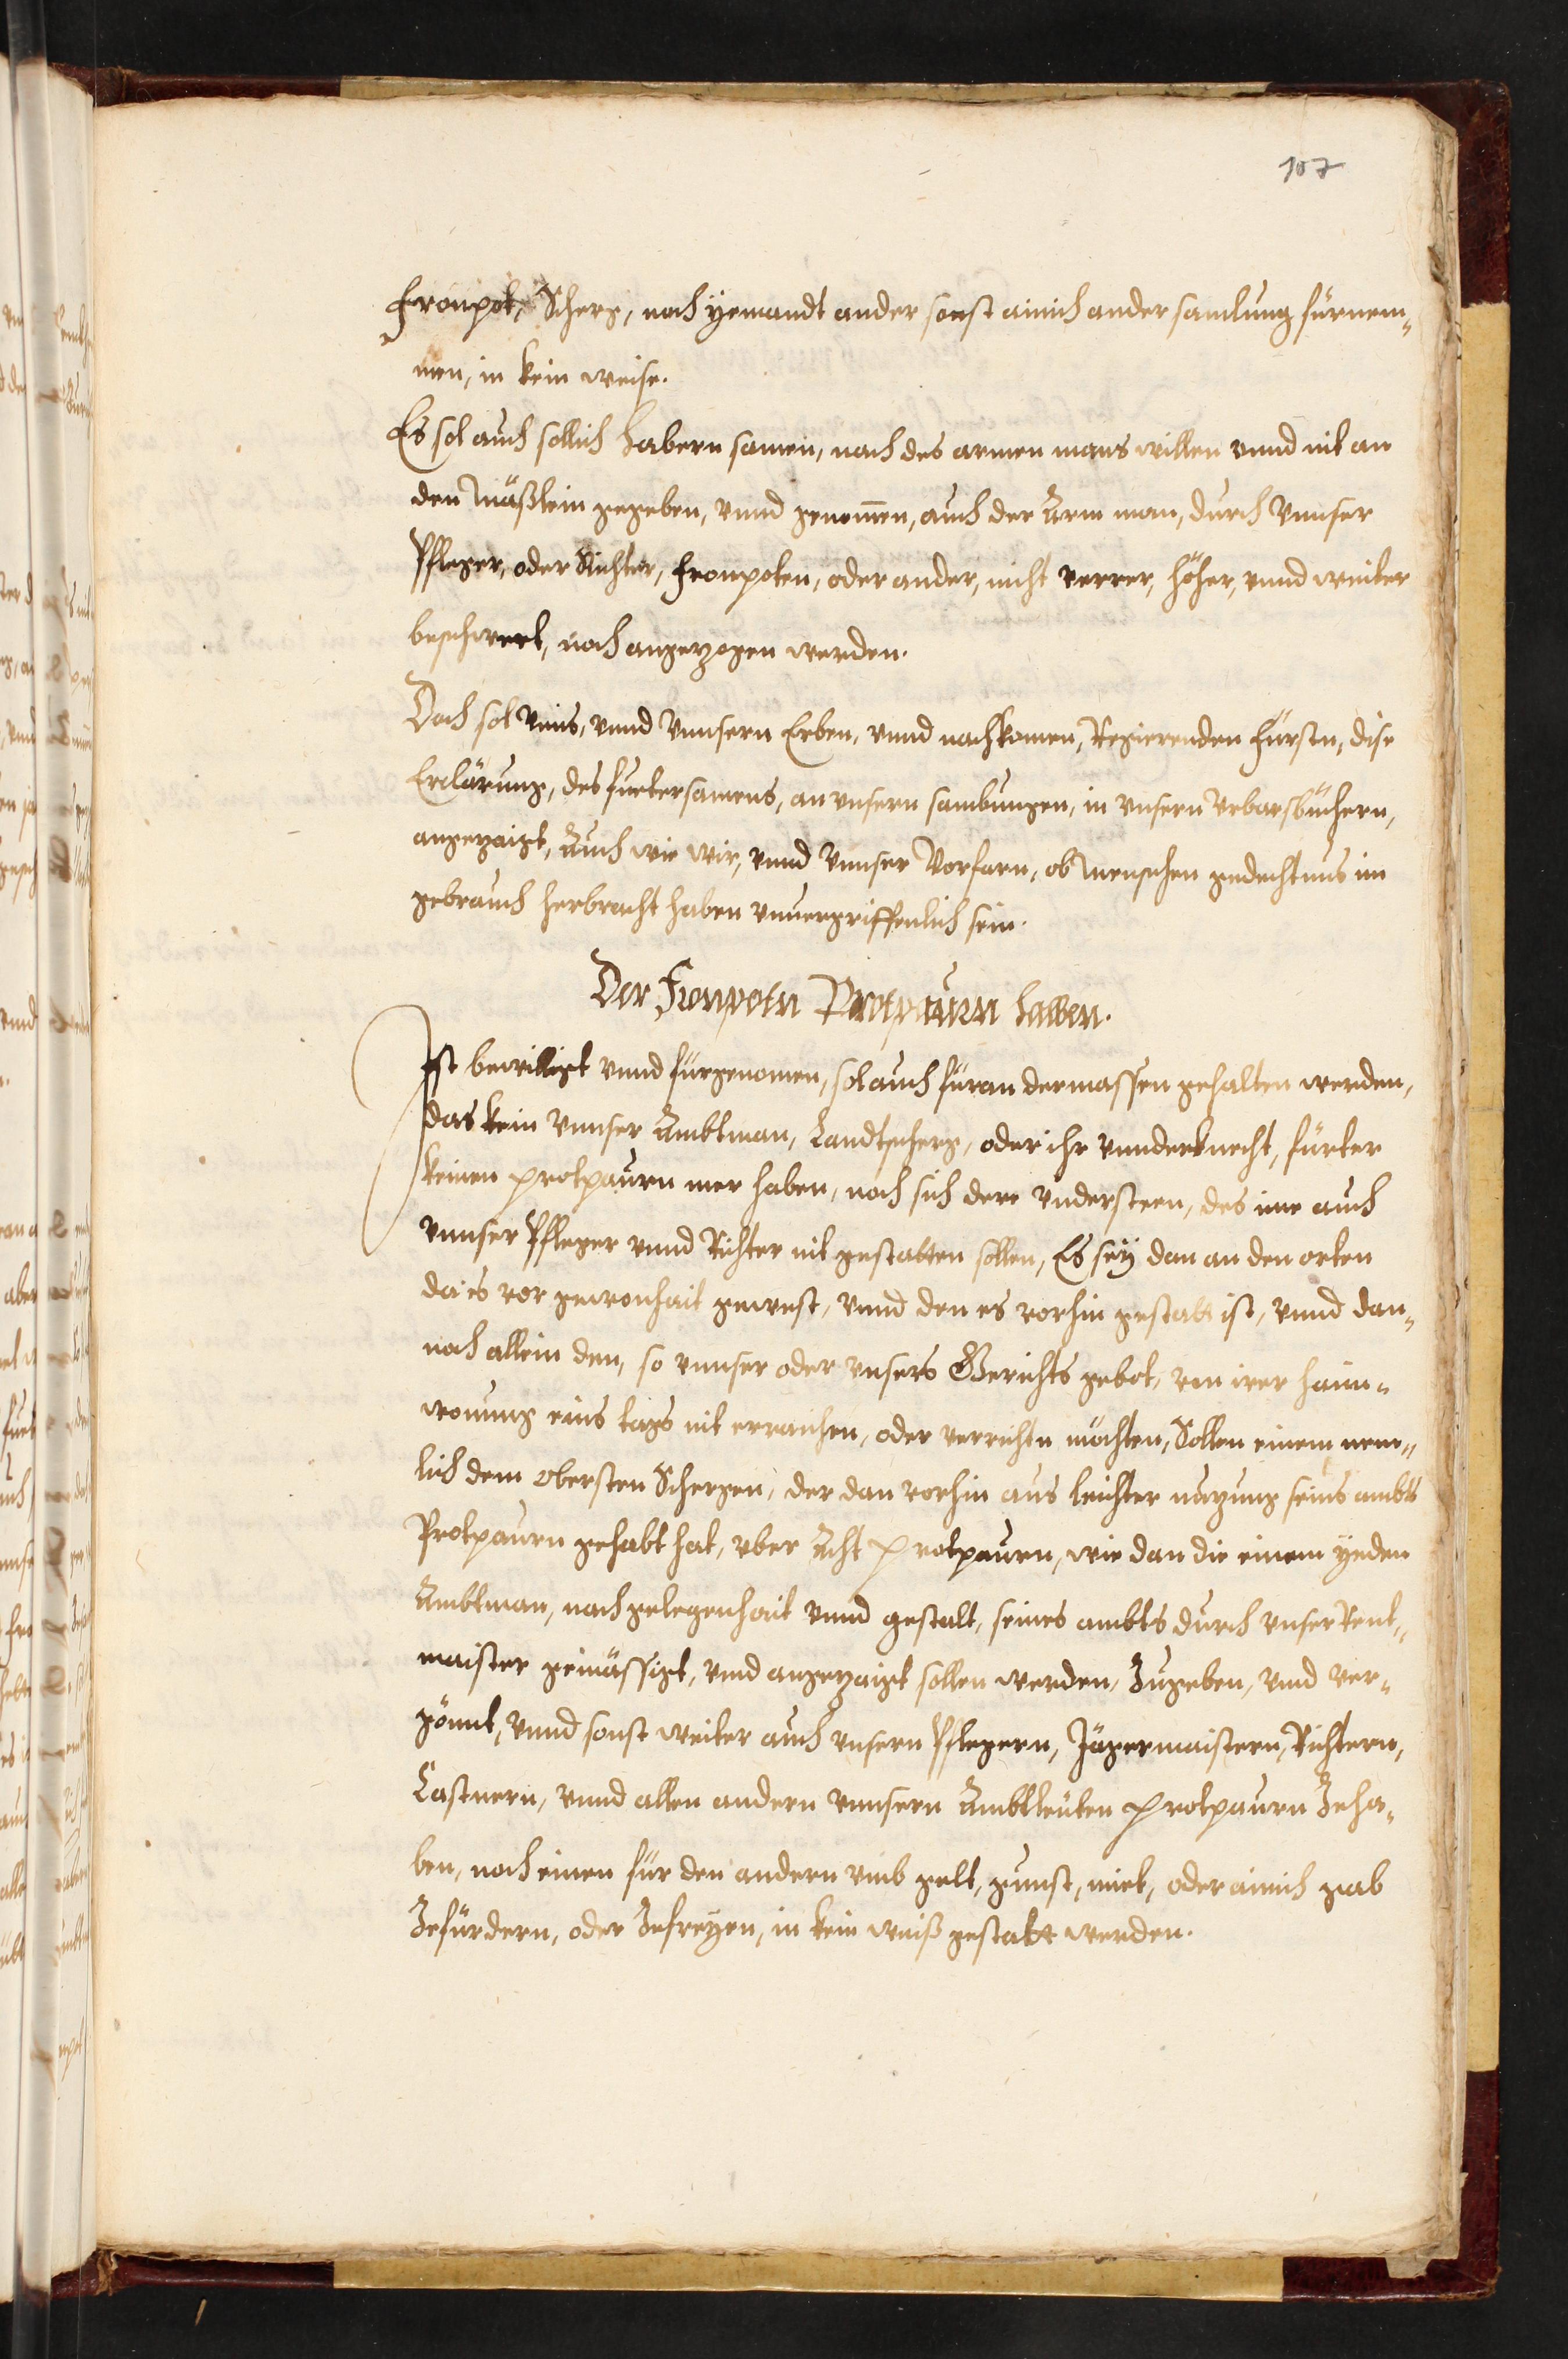 107
Fronpot, Scherg, noch yemandt ander sonst ainich ander samlung fürnem-
men, in kein weise.
Es sol auch sollich Habern samen, nach des armen mans willen vnnd nit an
den Mäßlein gegeben, vnnd genomen, auch der Arm man, durch Vnnser
Pfleger, oder Richter, Fronpoten, oder ander, nicht verrer, höher, vnnd weiter
beschwert, noch angezogen werden.
Doch sol Vnns, vnnd Vnnsern Erben, vnnd nachkomen, Regierenden Fürstn, dise
Erclärung, des fuetersamens, an vnsern sambungen, in vnsern Vrbarsbüchern,
angezaigt, Auch wie wir, vnnd Vnnser Vorfarn, ob Menschen gedechtnus im
gebrauch herbracht haben vnuergriffenlich sein.
Der Fronpotn Protpaurn halben.
Ist bewilligt vnnd fürgenomen, sol auch füran dermassen gehalten werden,
das kein Vnnser Ambtman, Landtscherg, oder ihr vnnderknecht, fürter
keinen protpaurn mer haben, noch sich dere vndersteen, des ime auch
vnnser Pfleger vnnd Richter nit gestatten sollen, Es sey dan an den orten
da es vor gewonhait gewest, vnnd den es vorhin gestatt ist, vnnd dan-
noch allein den, so vnnser oder vnsers Gerichts gebot, von irer haim-
wonung eins tags nit erraichen, oder verrichtn möchten, Sollen einem nem-
lich dem obersten Schergen, der dan vorhin aus leichter nuzung seins ambts
Protpaurn gehabt hat, vber Acht protpaurn, wie dan die einem yeden
Ambtman, nach gelegenhait vnnd gestalt, seines ambts durch vnser Rent-
maister gemässigt, vnnd angezaigt sollen werden, Zugeben, vnnd ver-
gönnt, vnnd sonst weiter auch vnsern Pflegern, Jägermaistern, Richtern,
Castnern, vnnd allen andern vnnsern Ambtleuten protpaurn Zeha-
ben, noch einen für den andern vmb gelt, gunst, miet, oder ainich gab
Zefürdern, oder Zefreyen, in kein weiß gestatt werden.